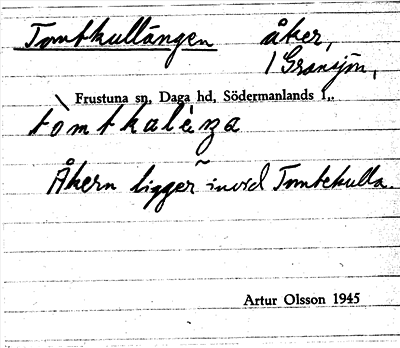 Tomtkullängen åker,
1 Gransjön,
Frustuna sn, Daga hd, Södermanlands l.
tòmtkalèŋa
Åkern ligger invid Tomtekulla.
Artur Olsson 1945